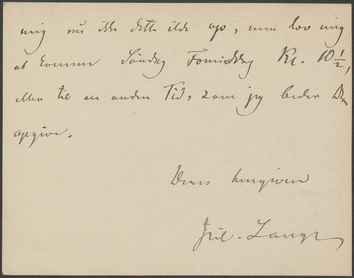 mig nu ikke dette ilde op, men lov mig
at komme Søndag Formiddag Kl. 10 1/2,
eller til en anden Tid, som jeg beder Dem
opgive.
Deres hengivne
Jul. Lange